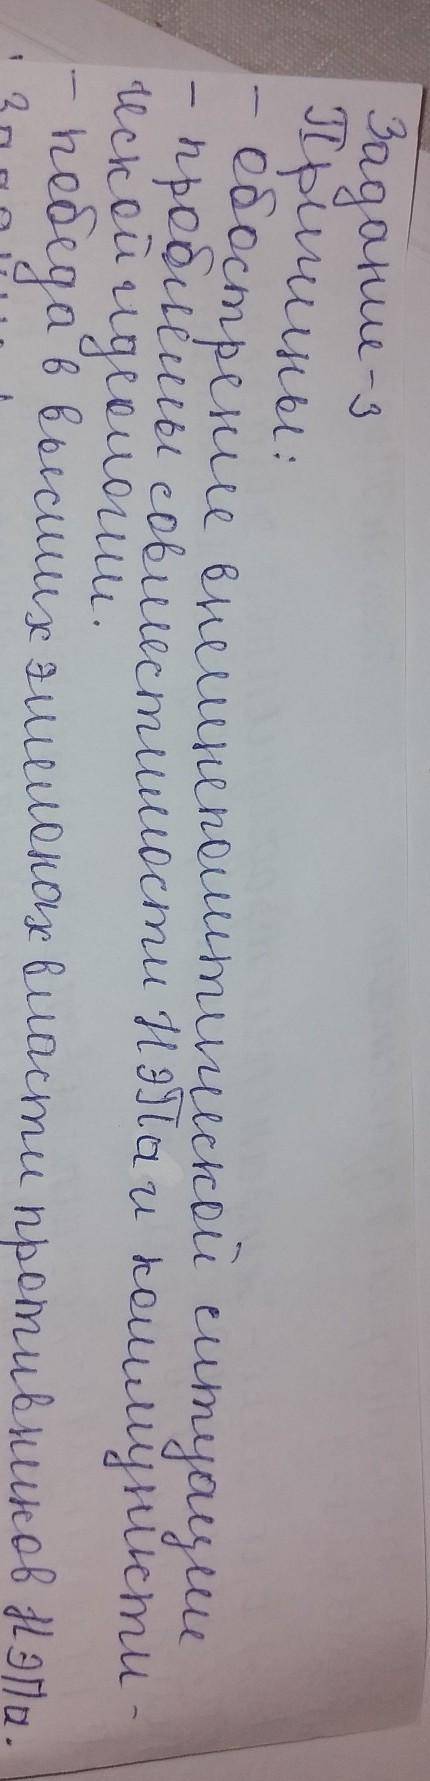 Задание-3
Причины:
- обострение внешнеполитической ситуации
- проблемы совместимости НЭПа и коммунисти-
ческой идеологии.
- победа в высших эшелонах власти противников НЭПа.